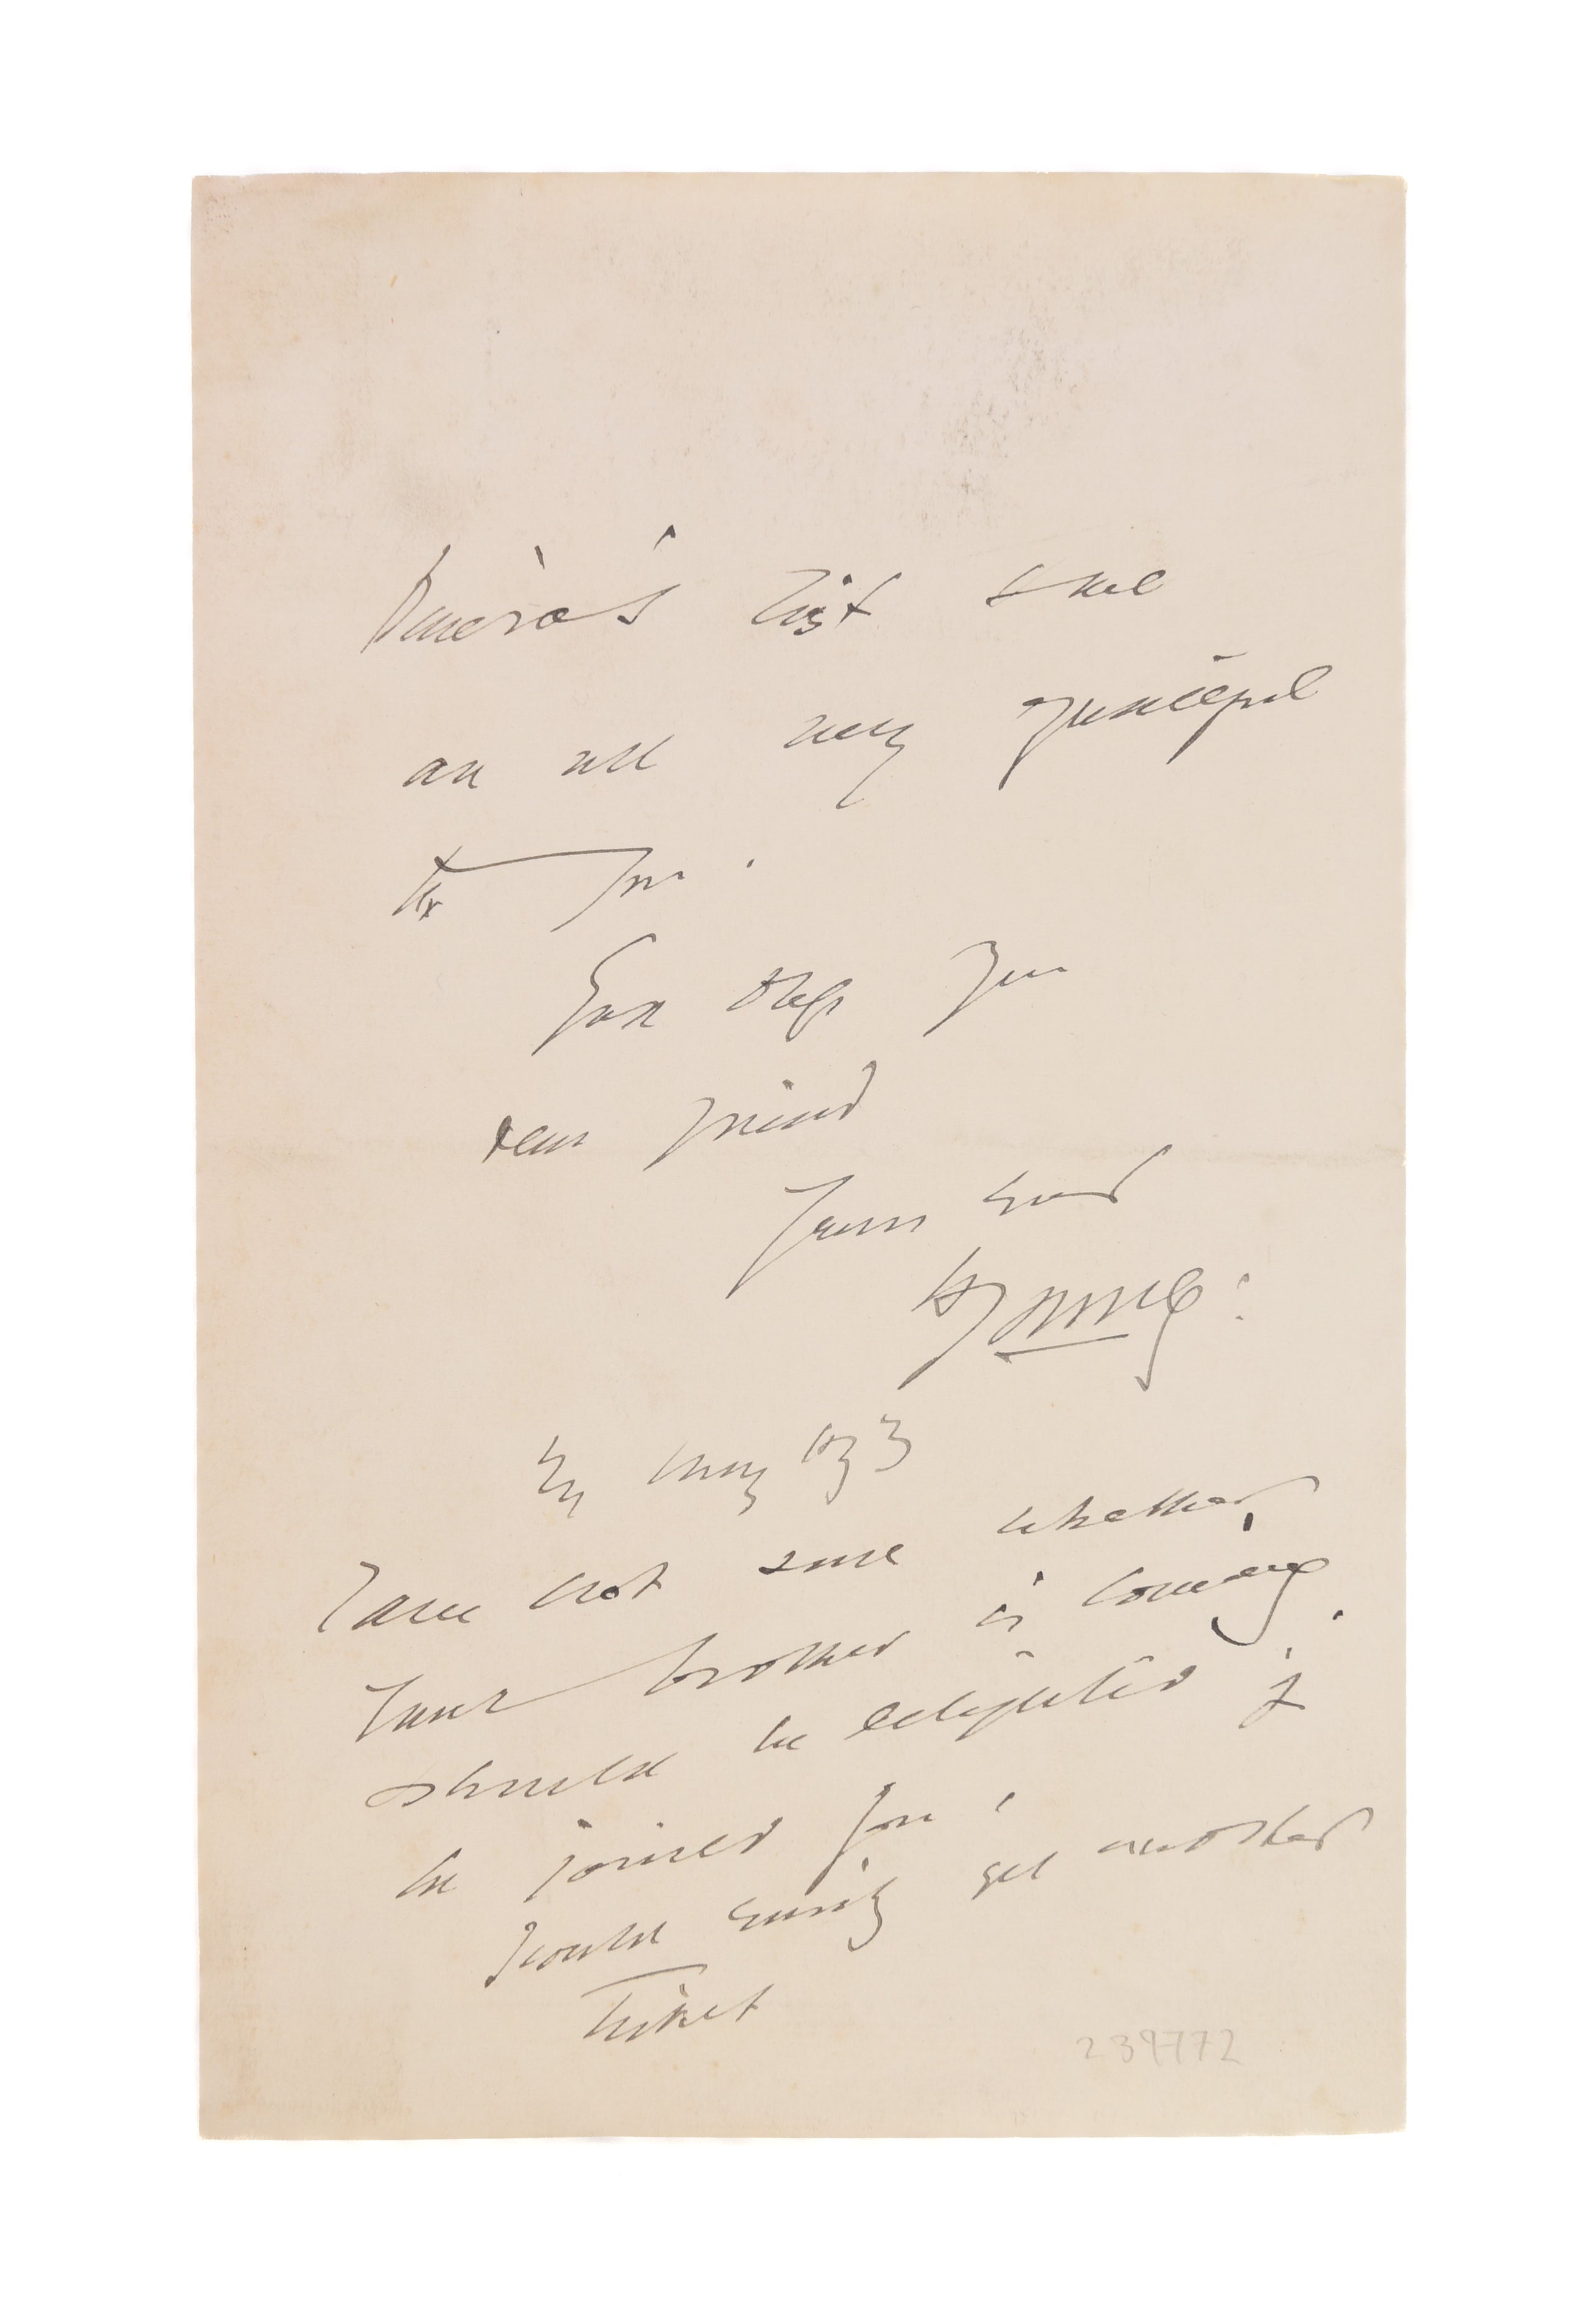 America's list & we
are all very grateful
to you.
God bless you
dear friend
Yours ever
HyIrving:
May 1893
I am not sure whether
your brother is coming.
should be delighted if
he joined you.
I could easily get another
ticket
239772